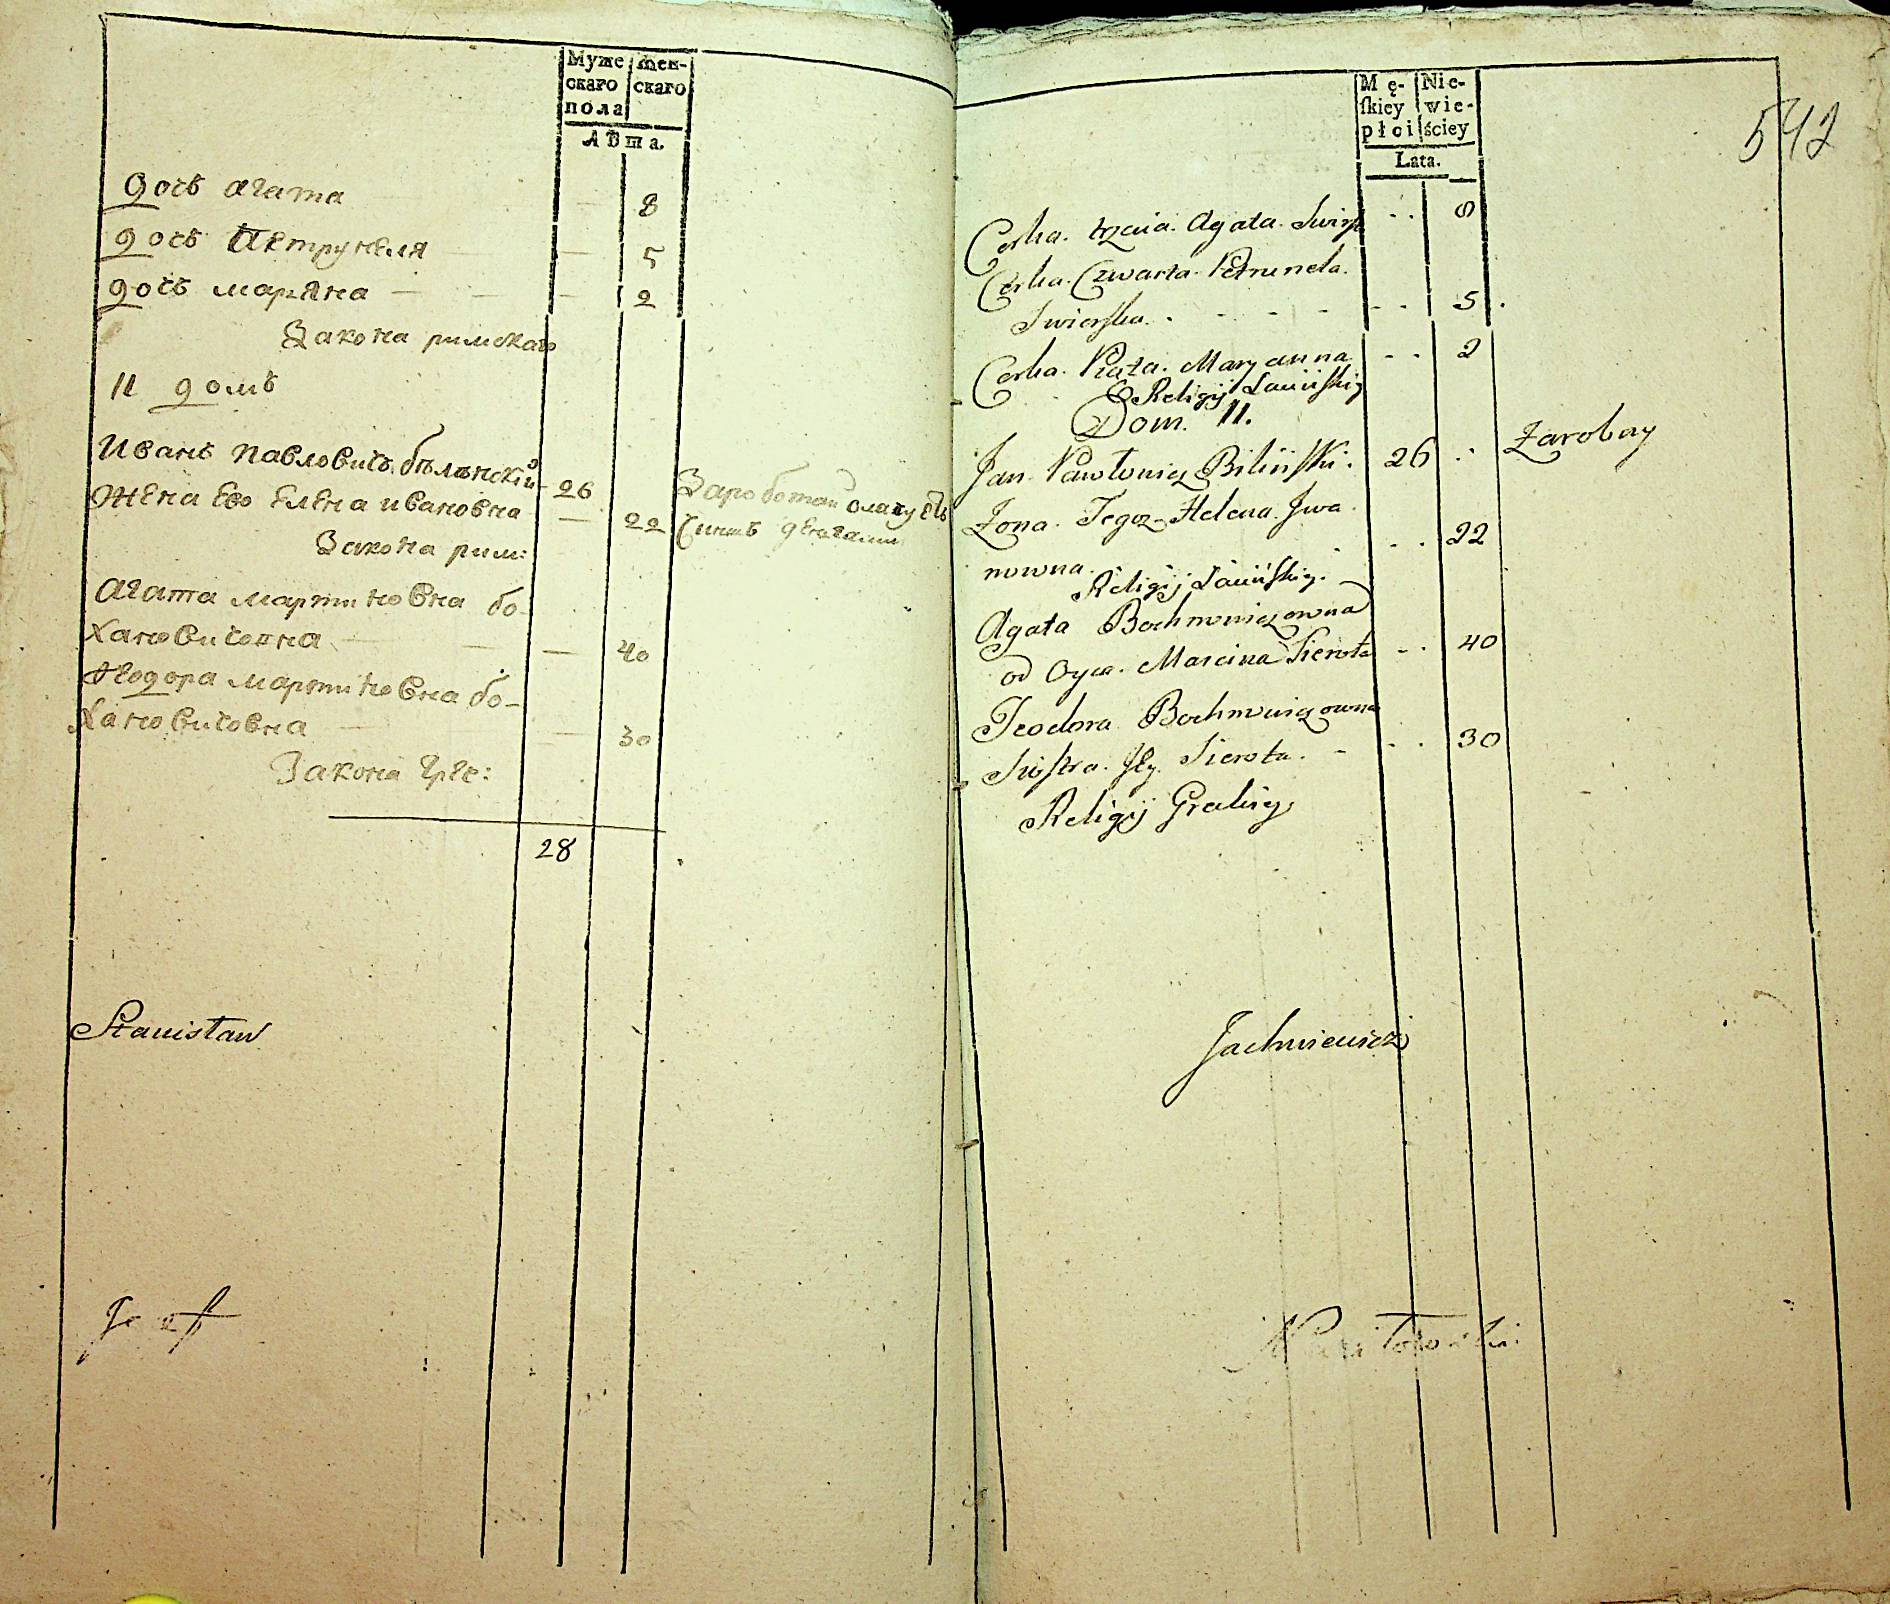 Муже
скаго
пола
Жен-
скаго
Лѣта.
дочь агата 8
дочь Петрунеля 5
дочь марꙗна 2
Закона римскаго
11 домъ
Иванъ Павловичъ бѣлѣнскій 26
Жена Ево Елена ивановна 22
Закона рим:
Заработаи
Чиншъ денгами
Агата мартиновна бо-
хановичовна 40
Ѳеодора мартиновна бо-
хановичовна 30
Закона Гре:
28
Stanisław
Jozef
Mę-
skiey
płci
Nie-
wie-
ściey
Lata.
542
Corka. trzcia. Agata. 8
Corka. Czwarta. Petrunela.
Swierska. 5
Corka. Piąta. Maryanna 2
Religij Lacińskiy
Dom. 11.
Jan. Pawłowicz Biliński. 26
Zona. Tegoz. Helena. Jwa
nowna. 22
Religij Lacińskiy.
Agata Bochnowiczowna
od Oyca. Marcina Sierota 40
Teodora Bochnowiczowna
Siostra. Jey. Sierota. 30
Religij Grekiey
Jachniewicz